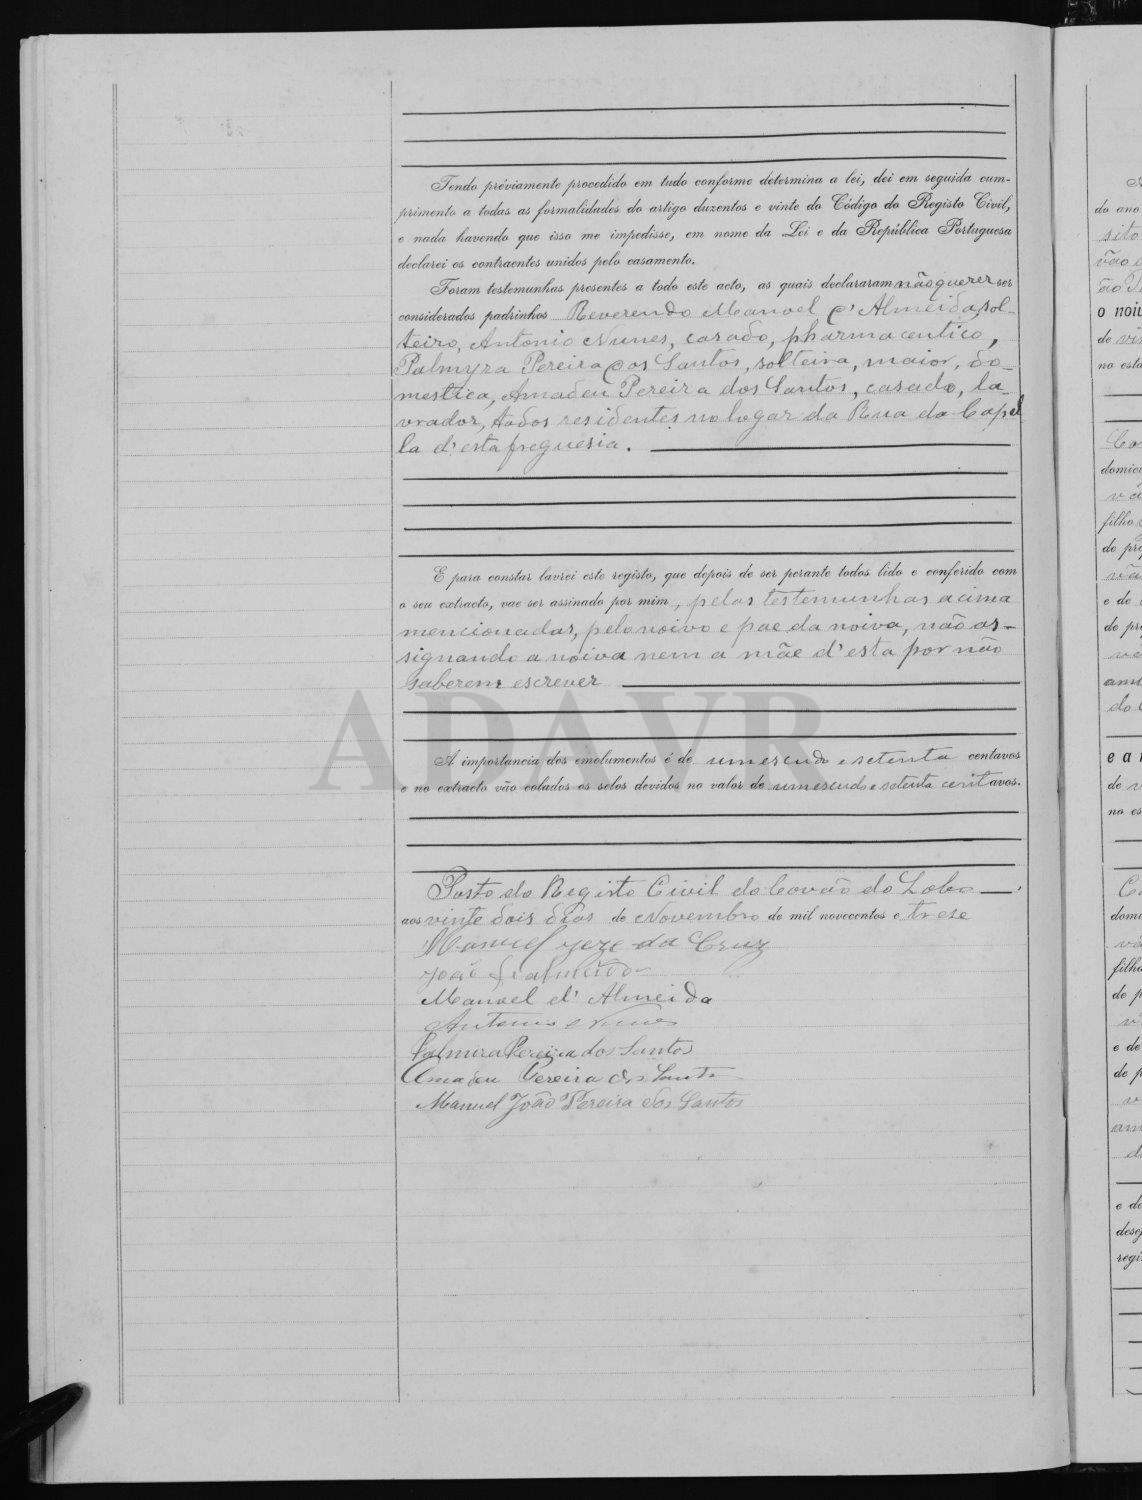 Tendo préviamente procedido em tudo conforme determina a lei, dei em seguida cum-
primento a todas as formalidades do artigo duzentos e vinte do Código do Registo Civil,
e nada havendo que isso me impedisse, em nome da Lei e da República Portuguesa
declarei os contraentes unidos pelo casamento.
Foram testemunhas presentes a todo este acto, as quais declararam não querer ser
considerados padrinhos Reverendo Manoel d'Almeida, sol-
teiro, Antonio Nunes, casado, pharmaceutico,
Palmyra Pereira dos Santos, solteira, maior, do-
mestica, Amadeu Pereira dos Santos, casado, la-
vrador, todos residentes no logar da Rua da Capel
la d'esta freguesia.
E para constar lavrei este registo, que depois de ser perante todos lido e conferido com
o seu extracto, vae ser assinado por mim, pelas testemunhas acima
mencionadas, pelo noivo e pae da noiva, não as-
signando a noiva nem a mãe d'esta por não
saberem escrever
ADAVR
A importancia dos emolumentos é de um escudo e setenta centavos
e no extracto vão colados os selos devidos no valor de um escudo e setenta centavos.
Posto do Registo Civil do Covão do Lobo
aos vinte dois dias de Novembro de mil novecentos e trese
Manuel da Cruz
João d'Almeida
Manoel d'Almeida
Antonio Nunes
Palmira Pereira dos Santos
Amadeu Pereira dos Santos
Manuel João Pereira dos Santos
do ano
sito
vão
o noiv
de
no esta
domici
filho
de
e de
de pr
do
e a
de
no es
domi
filh
de p
e de
de p
e de
desej
regi